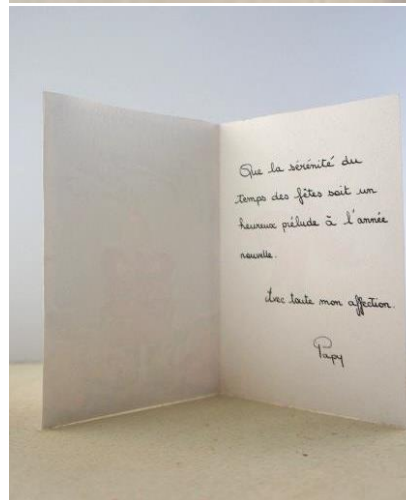 Que la sérénité du
temps des fêtes soit un
heureux prélude à l'année
nouvelle.
Avec toute mon affection.
Papy